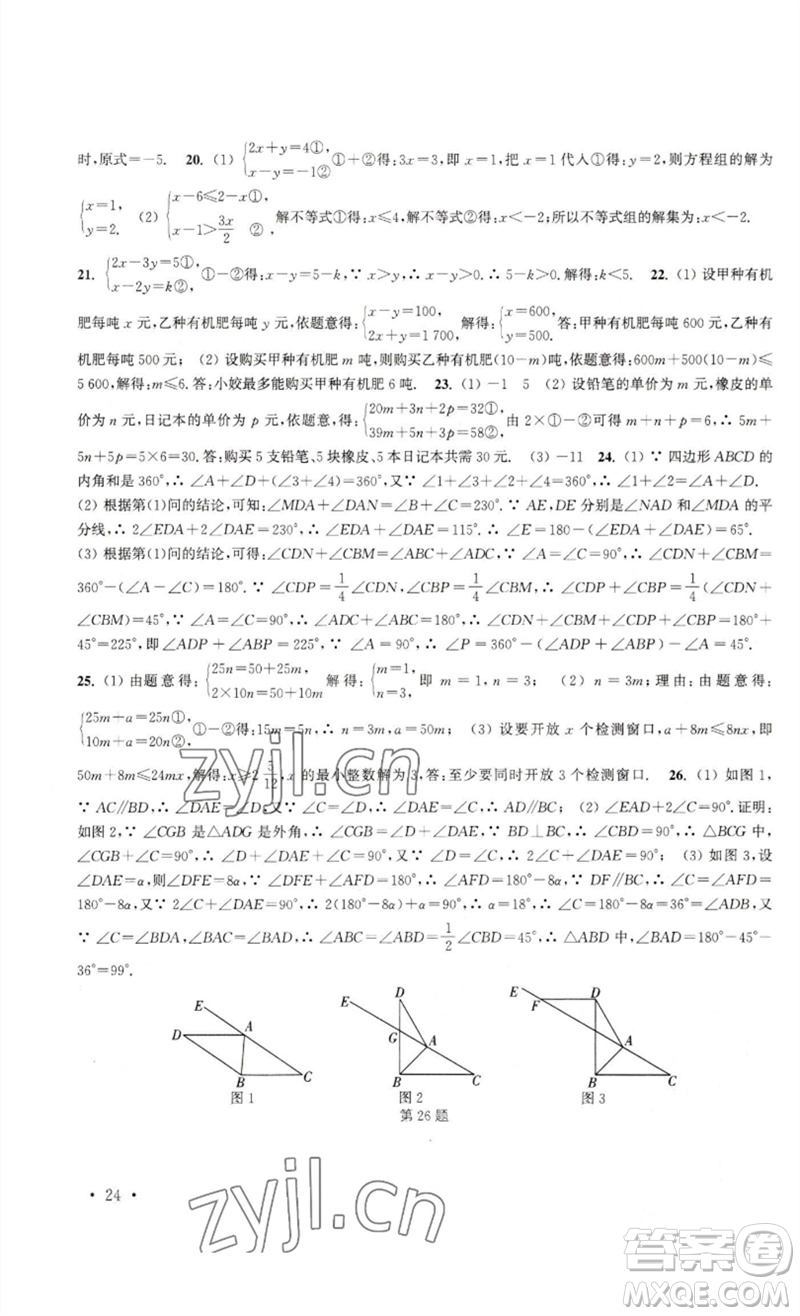 时,原式=-5. 20. (1) {2x+y=4①, x-y=-1② ①+②得:3x=3,即 x=1,把 x=1 代人①得:y=2,则方程组的解为
{x=1, y=2. (2) {x-6≤2-x①, x-1>3x/2 ②, 解不等式①得:x≤4,解不等式②得:x<-2;所以不等式组的解集为:x<-2.
21. {2x-3y=5①, x-2y=k②, ①-②得:x-y=5-k,∵ x>y,∴ x-y>0. ∴ 5-k>0. 解得:k<5. 22. (1) 设甲种有机
肥每吨 x 元,乙种有机肥每吨 y 元,依题意得:{x-y=100, 2x+y=1 700, 解得:{x=600, y=500. 答:甲种有机肥每吨 600 元,乙种有
机肥每吨 500 元; (2) 设购买甲种有机肥 m 吨,则购买乙种有机肥(10-m)吨,依题意得:600m+500(10-m)≤
5 600,解得:m≤6. 答:小姣最多能购买甲种有机肥 6 吨. 23. (1) -1 5 (2) 设铅笔的单价为 m 元,橡皮的单
价为 n 元,日记本的单价为 p 元,依题意,得:{20m+3n+2p=32①, 39m+5n+3p=58②, 由 2×①-②可得 m+n+p=6,∴ 5m+
5n+5p=5×6=30. 答:购买 5 支铅笔、5块橡皮、5 本日记本共需 30 元. (3) -11 24. (1) ∵ 四边形 ABCD 的
内角和是 360°,∴ ∠A+∠D+(∠3+∠4)=360°,又∵ ∠1+∠3+∠2+∠4=360°,∴ ∠1+∠2=∠A+∠D.
(2) 根据第(1)问的结论,可知:∠MDA+∠DAN=∠B+∠C=230°. ∵ AE,DE 分别是∠NAD 和∠MDA 的平
分线,∴ 2∠EDA+2∠DAE=230°,∴ ∠EDA+∠DAE=115°. ∴ ∠E=180-(∠EDA+∠DAE)=65°.
(3) 根据第(1)问的结论,可得:∠CDN+∠CBM=∠ABC+∠ADC,∵ ∠A=∠C=90°,∴ ∠CDN+∠CBM=
360°-(∠A-∠C)=180°. ∵ ∠CDP=1/4∠CDN,∠CBP=1/4∠CBM,∴ ∠CDP+∠CBP=1/4(∠CDN+
∠CBM)=45°,∵ ∠A=∠C=90°,∴ ∠ADC+∠ABC=180°,∴ ∠CDN+∠CBM+∠CDP+∠CBP=180°+
45°=225°,即∠ADP+∠ABP=225°,∵ ∠A=90°,∴ ∠P=360°-(∠ADP+∠ABP)-∠A=45°.
25. (1) 由题意得:{25n=50+25m, 2×10n=50+10m, 解得:{m=1, n=3, 即 m=1,n=3; (2) n=3m;理由:由题意得:
{25m+a=25n①, 10m+a=20n②, ①-②得:15m=5n,∴ n=3m,a=50m; (3) 设要开放 x 个检测窗口,a+8m≤8nx,即
50m+8m≤24mx,解得:x≥2 5/12,x 的最小整数解为 3,答:至少要同时开放 3 个检测窗口. 26. (1) 如图 1,
∵ AC∥BD,∴ ∠DAE=∠D,又∵ ∠C=∠D,∴ ∠DAE=∠C,∴ AD∥BC; (2) ∠EAD+2∠C=90°. 证明:
如图 2,∵ ∠CGB 是△ADG 是外角,∴ ∠CGB=∠D+∠DAE,∵ BD⊥BC,∴ ∠CBD=90°,∴ △BCG 中,
∠CGB+∠C=90°,∴ ∠D+∠DAE+∠C=90°,又∵ ∠D=∠C,∴ 2∠C+∠DAE=90°; (3) 如图 3,设
∠DAE=α,则∠DFE=8α,∵ ∠DFE+∠AFD=180°,∴ ∠AFD=180°-8α,∵ DF∥BC,∴ ∠C=∠AFD=
180°-8α,又∵ 2∠C+∠DAE=90°,∴ 2(180°-8α)+α=90°,∴ α=18°,∴ ∠C=180°-8α=36°=∠DAB,又
∵ ∠C=∠BDA,∠BAC=∠BAD,∴ ∠ABC=∠ABD=1/2∠CBD=45°,∴ △ABD 中,∠BAD=180°-45°-
36°=99°.
E D A B C
图 1
E D G A B C
图 2
E F D A B C
图 3
第 26 题
• 24 •
zyjl.cn
zyjl.cn
答案卷
MXQE.COM